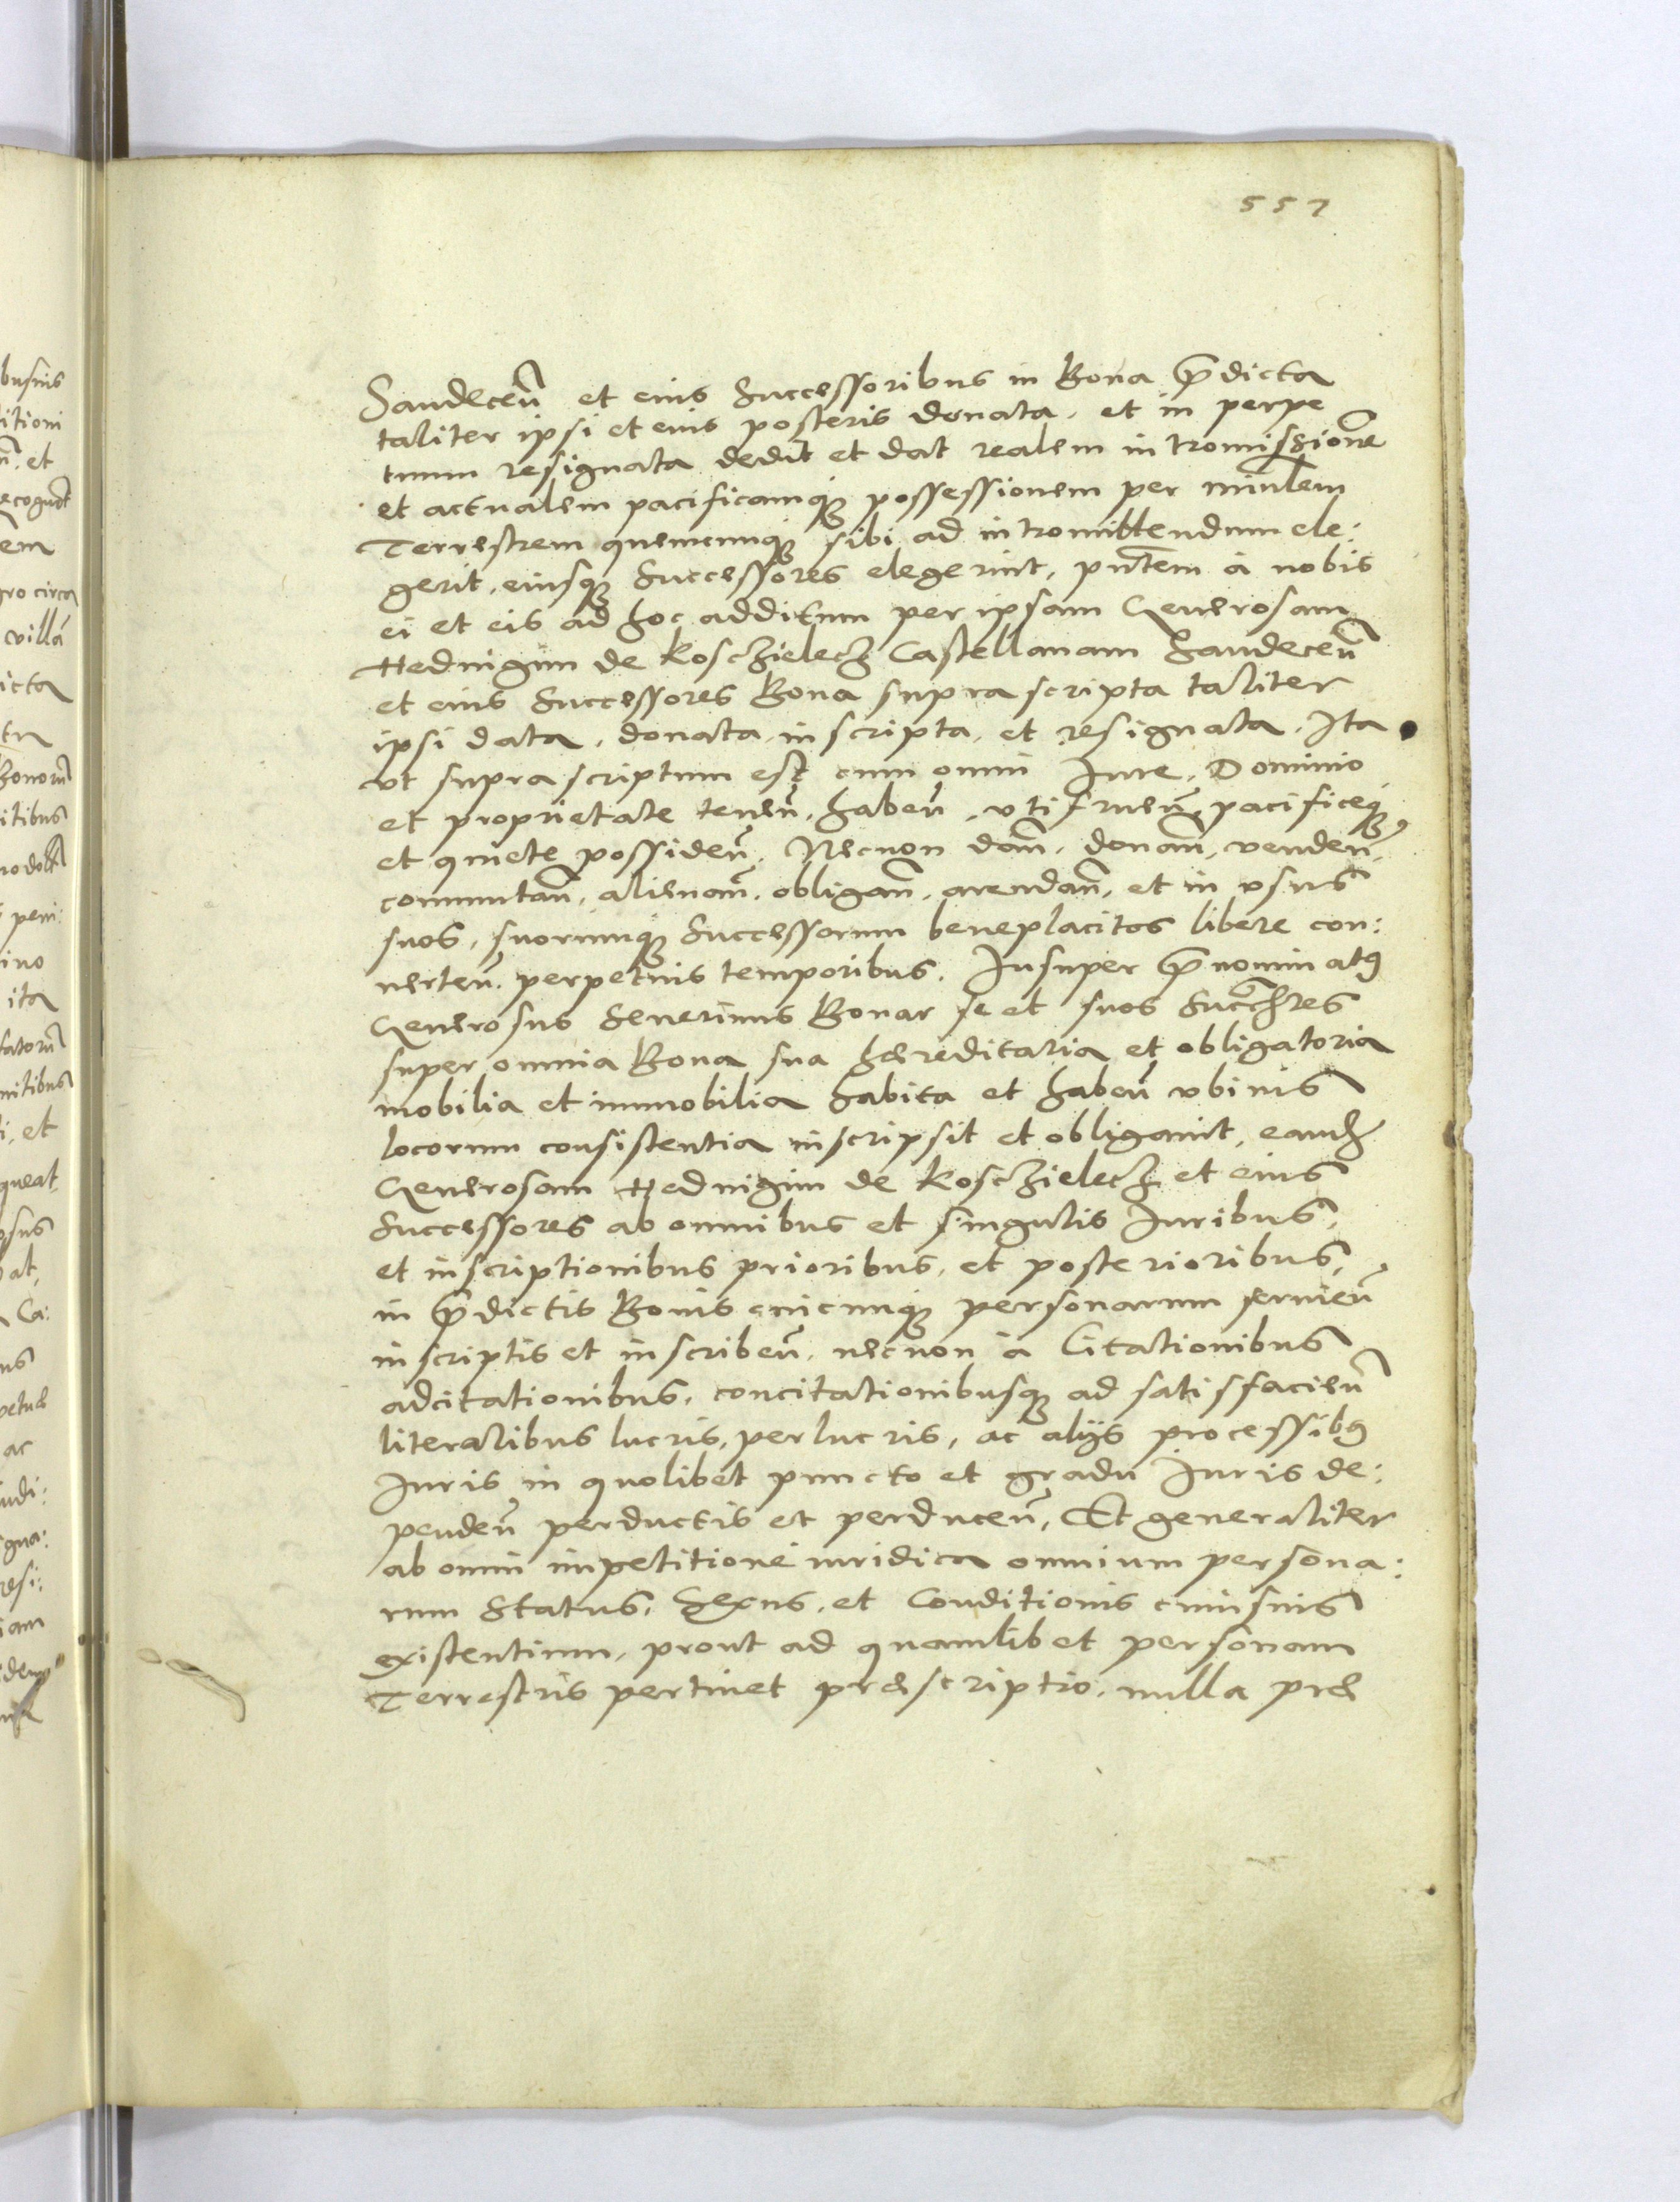 557
Sandeceñ et eius Successoribus in Bona p̃dicta
taliter ipsi et eius posteris donata, et in perpe
tuum resignata dedit et dat realem intromissionẽ
et actualem pacificamq̃ possessionem per minĩlem
Terrestrem quemcunq̃ sibi ad intromittendum ele:
gerit, eiusq̃ Successores elegerint, pñtem à nobis
ei et eis ad hoc additum per ipsam Generosam
Hedwigim de Koschzielecz Castellanam Sandeceñ
et eius Successores Bona suprascripta taliter
ipsi data, donata, inscripta, et resignata. Ita
vt suprascriptum est cum omni Iure, Dominio
et proprietate teneñ, habeñ, vtifrueñ, pacificeq̃
et quiete possideñ. Necnon dañ, donañ, vendeñ,
commutañ, alienañ, obligañ, arendañ, et in vsus
suos, suorumq̃ Successorum beneplacitos libere con:
uerteñ perpetuis temporibus. Insuper p̃nominatꝰ
Generosus Seuerinus Bonar se et suos Succr̃es
super omnia Bona sua hæreditaria et obligatoria
mobilia et immobilia habita et habeñ vbiuis
locorum consistentia inscripsit et obligauit, eand̃
Generosam Hedwigim de Koschzielecz et eius
Successores ab omnibus et singulis Iuribus,
et inscriptionibus prioribus, et posterioribus,
in p̃dictis Bonis cuicunq̃ personarum seruieñ
inscriptis et inscribeñ, necnon à Citationibus
adcitationibus, concitationibusq̃ ad satisfacieñ
literalibus lucris, perlucris, ac alijs processibꝰ
Iuris in quolibet puncto et gradu Iuris de:
pendeñ perductis et perduceñ, Et generaliter
ab omni impetitione iuridica omnium persona:
rum Status, Sexus, et Conditionis cuiusuis
existentium, prout ad quamlibet personam
Terrestris pertinet præscriptio, nulla præ